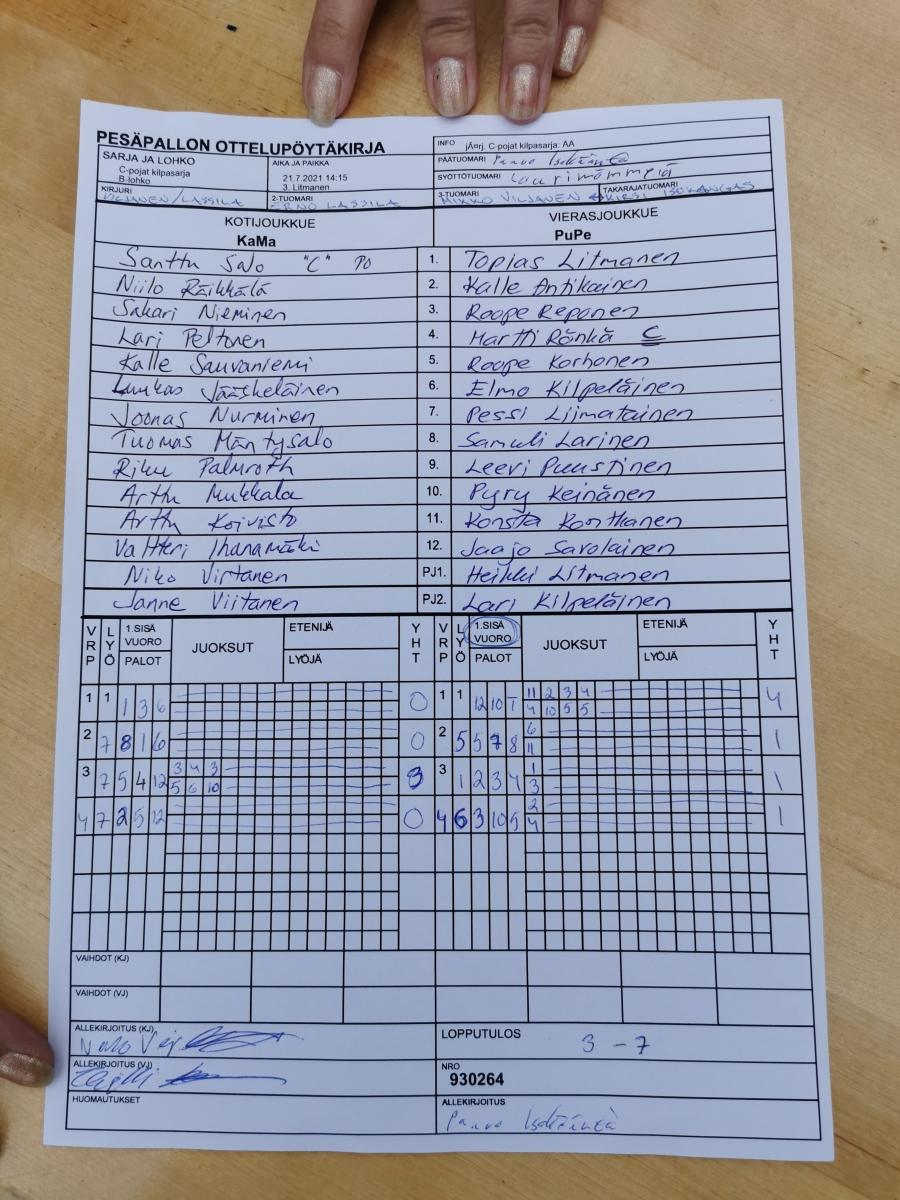 PESÄPALLON OTTELUPÖYTÄKIRJA
INFO jÄnrj. C-pojat kilpasarja: AA
SARJA JA LOHKO
C-pojat kilpasarja
B-lohko
AIKA JA PAIKKA
21.7.2021 14:15
3. Litmanen
PÄÄTUOMARI Paavo
SYÖTTÖTUOMARI
KIRJURI VILJANEN/LASSILA
2-TUOMARI ERNO LASSILA
3-TUOMARI MIKKO VILJANEN
TAKARAJATUOMARI KIRSI ISOKANGAS
KOTIJOUKKUE
KaMa
VIERASJOUKKUE
PuPe
Santtu Salo "C" PO 1. Topias Litmanen
Niilo Räikkälä 2. Kalle Antikainen
Sakari Nieminen 3. Roope Reponen
Lari Peltonen 4. Martti Ränkä C
Kalle Sauvaniemi 5. Roope Korhonen
Luukas Jääskeläinen 6. Elmo Kilpeläinen
Joonas Nurminen 7. Pessi Liimatainen
Tuomas Mäntysalo 8. Samuli Larinen
Riku Palmroth 9. Leevi Puustinen
Arttu Mukkala 10. Pyry Keinänen
Arttu Koivisto 11. Konsta Konttanen
Valtteri Ihanamäki 12. Jaajo Savolainen
Niko Virtanen PJ1. Heikki Litmanen
Janne Viitanen PJ2. Lari Kilpeläinen
VRP LYÖ 1.SISÄ VUORO PALOT JUOKSUT ETENIJÄ LYÖJÄ YHT VRP LYÖ 1.SISÄ VUORO PALOT JUOKSUT ETENIJÄ LYÖJÄ YHT
1 1 1 3 6 0 1 1 12 10 T 11 2 3 4 4
4 10 5 5
2 7 8 1 6 0 2 5 5 7 8 6 1
11
3 7 5 4 12 3 4 3 3 3 1 2 3 4 1 1
5 6 10 3
4 7 2 5 12 0 4 6 3 10 5 2 1
4
VAIHDOT (KJ)
VAIHDOT (VJ)
ALLEKIRJOITUS (KJ)
LOPPUTULOS 3 - 7
ALLEKIRJOITUS (VJ)
NRO
930264
HUOMAUTUKSET
ALLEKIRJOITUS